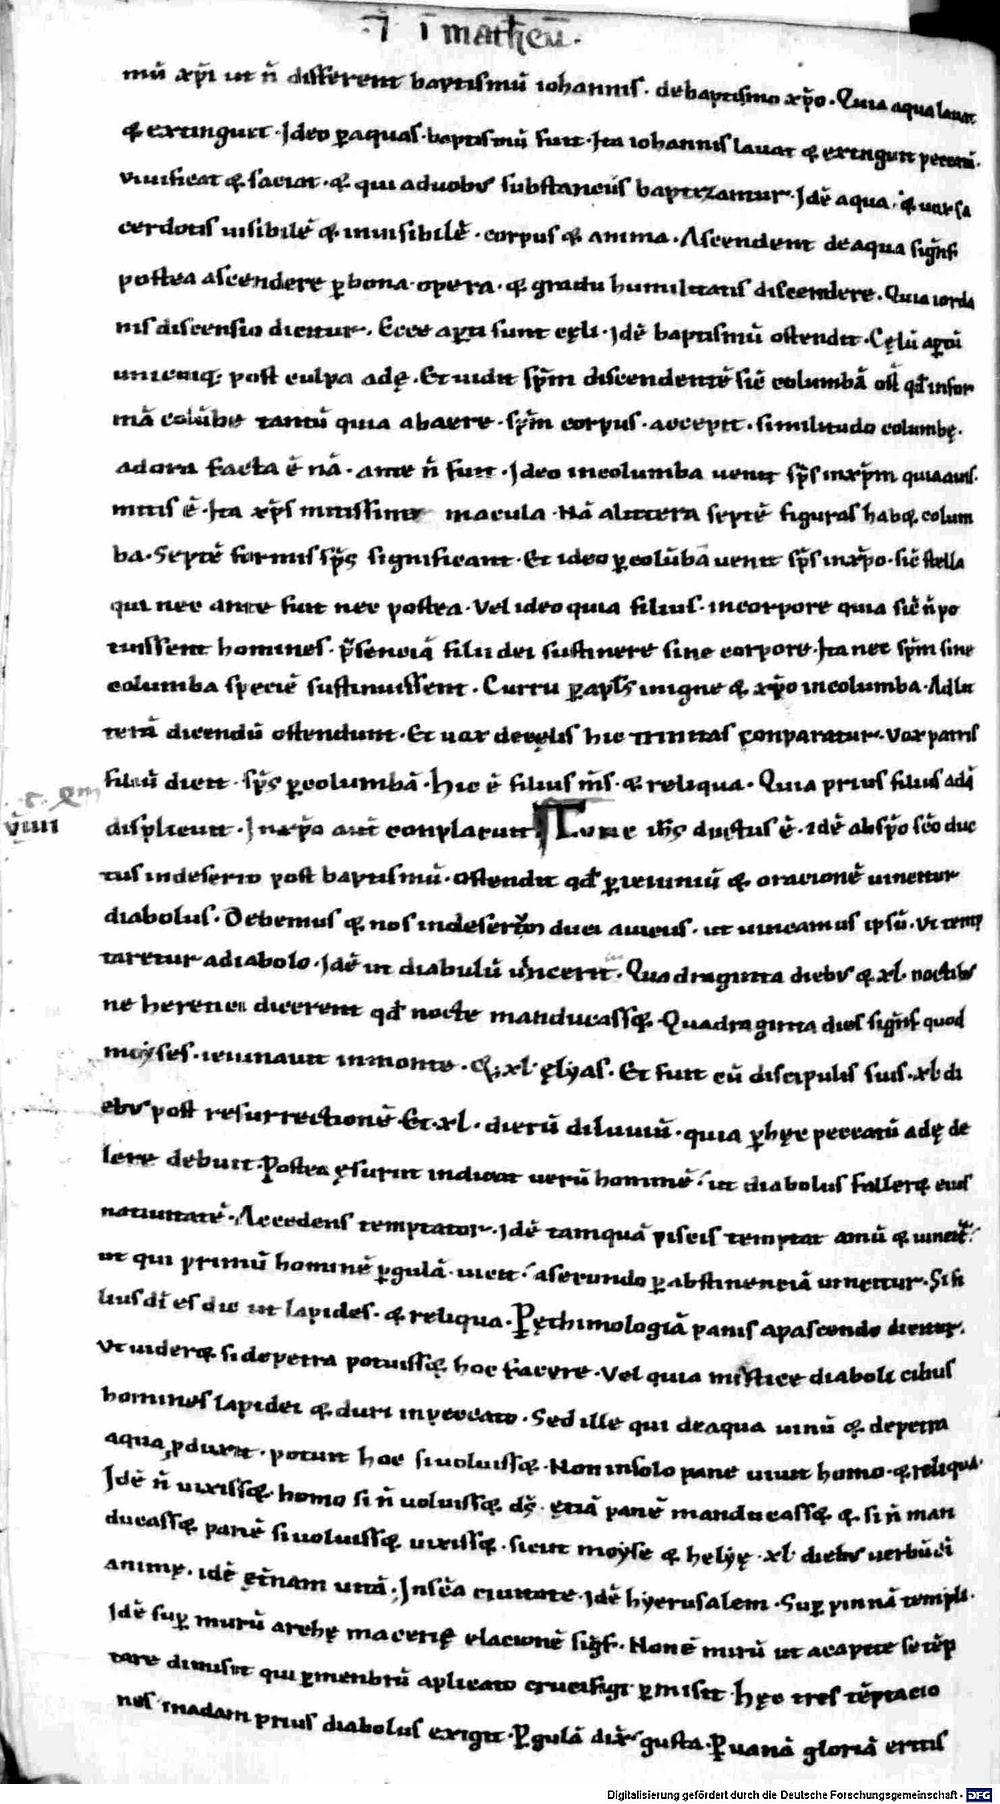 ·i· ī matheū·
mū xp̄i ut n̄ different baptismū iohannis · debaptismo xp̄o · Quia aqua lauat
& extinguit · Ideo ꝑaquas · baptismū fuit · Ita iohannis lauat & extinguit peccatū ·
uiuificat & saciat · & qui aduobus substanciis baptizamur · Idē aqua · & uox sa
cerdotis uisibilē & inuisibilē · corpus & anima · Ascendent deaqua signif
postea ascendere ꝑbona opera · & gradu humilitatis discendere · Quia iorda
nis discensio dicitur · Ecce aꝑti sunt cęli · Idē baptismū ostendit · Cęlū aꝑiri
unicuiq; post culpa adę · Et uidit sp̄m discendentē sic̄ columbā ost̄ qd̄ infor
mā colūbe tantū quia abaere · sp̄m corpus · accepit · similitudo columbę ·
adora facta ē nā · ante n̄ fuit · Ideo incolumba uenit sp̄s inxp̄m quia auis ·
mitis ē · Ita xp̄s mitissimus macula · Nā alittera septē figuras hab& colum
ba · Septē formis sp̄s significant · Et ideo ꝑcolūbā uenit sp̄s inxp̄o · sic̄ stella
qui nec ante fuit nec postea · Vel ideo quia filius · incorpore quia sic̄ n̄ po
tuissent homines · p̄senciā filii dei sustinere sine corpore · Ita nec sp̄m sine
columba speciē sustinuissent · Curru ꝑapl̄s inigne & xp̄o incolumba · Adlit
terā dicendū ostendunt · Et uox decęlis hic trinitas conparatur · Vox patris
filiū dicit · sp̄s ꝑcolumbā · hic ē filius m̄s · & reliqua · Quia prius filius adā
displicuit · Inxp̄o aut̄ conplacuit Tunc ih̄s ductus ē · idē absp̄o sc̄o duc
tus indeserto post baptismū · ostendit qd̄ ꝑieiuniū & oracionē uincitur
diabolus · Debemus & nos indesertum duci auiciis · ut uincamus ipsū · Vt temp
taretur adiabolo · Idē ut diabulū uincerit · Quadraginta diebus & xl · noctibus
ne heretici dicerent qd̄ nocte manducass& · Quadraginta dies signif quod
moyses · ieiunauit inmonte · & xl ęlyas · Et fuit cū discipulis suis · xl di
ebus post resurrectionē · Et · xl · dierū diluuiū · quia ꝑhęc peccatū adę de
lere debuit · Postea ęsuriit indicat uerū hominē · ut diabolus faller& eius
natiuitatē · Accedens temptator · Idē tamquā piscis temptat amū & uincit
ut qui primū hominē ꝑgulā · uicit · asecundo ꝑabstinenciā uincitur · Si fi
lius dī es dic ut lapides · & reliqua · Pęthimologiā panis apascendo dicitur ·
Vt uider& si depetra potuiss& hoc facere · Vel quia mistice diaboli cibus
homines lapidei & duri inpeccato · Sed ille qui deaqua uinū & depetra
aqua ꝓduxit · potuit hoc siuoluiss& · Non insolo pane uiuit homo · & reliqua ·
Idē n̄ uixiss& · homo si n̄ uoluiss& ds̄ · ęciā panē manducass& & si n̄ man
ducass& panē siuoluiss& uixiss& · sicut moyse & helyę · xl diebus uerbū dī
animę · idē ęt̄nam uitā · Insc̄a ciuitate · Idē hyerusalem · Suꝑ pinnā templi ·
Idē suꝑ murū archę macerię elacionē signif · Non ē mirū ut acapite se tēp
tare dimisit qui ꝑmenbrū aplicato crucifigi ꝑmisit hęc tres tēptacio
nes inadam prius diabolus exigit · Pgulā dix̄ gusta · P uanā gloriā eritis
Digitalisierung gefördert durch die Deutsche Forschungsgemeinschaft - DFG